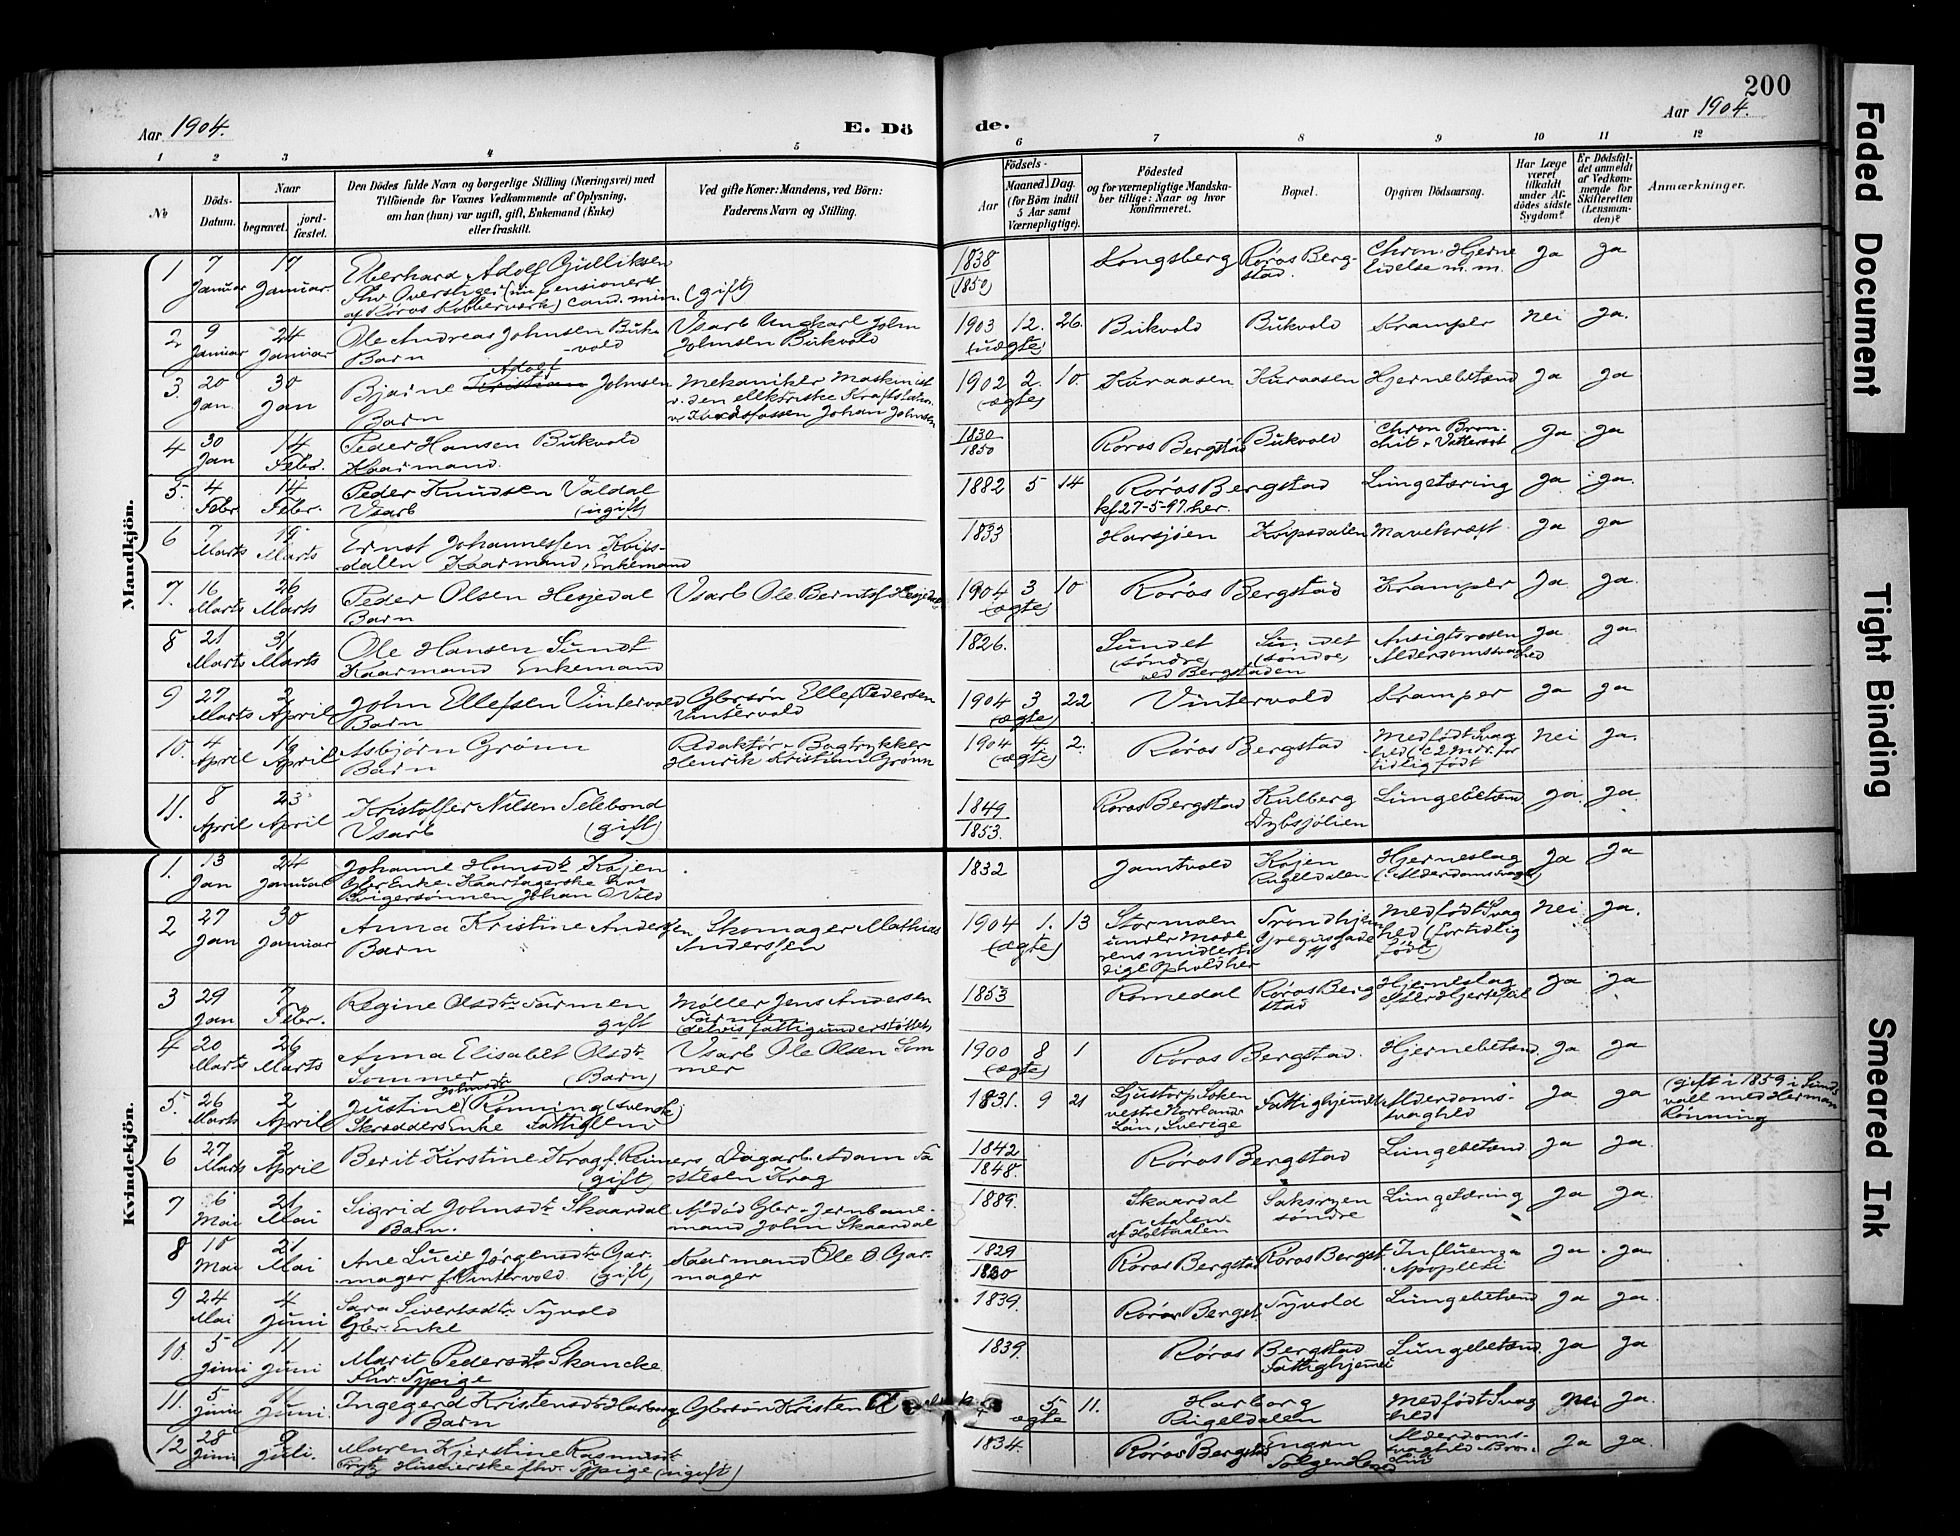 200
Aar 1904.
E. Dö de.
Aar 1904.
1 2 3 4 5 6 7 8 9 10 11 12
No
Döds-Datum.
Naar
begravet.
jord-fæstet.
Den Dödes fulde Navn og borgerlige Stilling (Næringsvei) med
Tilföiende for Voxnes Vedkommende af Oplysning,
om han (hun) var ugift, gift, Enkemand (Enke)
eller fraskilt.
Ved gifte Koner: Mandens, ved Börn:
Faderens Navn og Stilling.
Födsels-
Aar
Maaned Dag.
(for Börn indtil
5 Aar samt
Værnepligtige).
Födested
og for værnepligtige Mandska-
ber tillige: Naar og hvor
Konfirmeret.
Bopæl.
Opgiven Dödsaarsag.
Har Læge
været
tilkaldt
under Af-
dödes sidste
Sygdom?
Er Dödsfal-
det anmeldt
af Vedkom-
mende for
Skifteretten
(Lensman-
den)?
Anmærkninger.
Mandkjön.
1 7 Januar 17 Januar. Eberhard Adolf Gulliksen
fhv. Overstiger (nu pensioneret
af Röros Kobberværk) cand. min. (gift)
1838 (1850) Kongsberg Röros Berg-stad. Chron. Hjerne lidelse m. m. Ja Ja
2 9 Januar 24 Januar Ole Andreas Johnsen Buk-vold
Barn
Vsarb Ungkarl John
Johnsen Bukvold
1903 12. 26. (uægte) Bukvold Bukvold Kramper Nei Ja.
3. 20 Jan. 30 Jan Bjarne Kristian Adolf Johnsen
Barn
Mekaniker Maskinist
v. den elektriske Kraftstation
v. Kuraasfossen Johan Johnsen
1902 2. 10. (ægte) Kuraasen Kuraasen Hjernebetænd Ja Ja
4 30 Jan 14 Febr. Peder Hansen Bukvold
Kaarmand.
1830 1850 Röros Bergstad Bukvold Chron Bron-chit. Vattersot Ja Ja
5. 4 Febr 14 Febr. Peder Knudsen Valdal
Vsarb (ugift)
1882 5 14 Röros Bergstad
kf 27-5-97 her.
Lungetæring Ja Ja.
6 7 Marts 15 Marts Ernst Johannessen Korps-
dalen Kaarmand, Enkemand
1833 Harsjöen Korpsdalen Mavekræft Ja Ja
7. 16 Marts 26 Marts Peder Olsen Hesjedal
Barn
Vsarb Ole Berntsf Hesjedal
1904 3 10 (ægte) Röros Bergstad Kramper Ja Ja.
8 21 Marts 31 Marts Ole Hansen Sundt
Kaarmand Enkemand
1826. Sundet (söndre) ved Bergstaden Sundet (söndre) Ansigtsrosen Alderdomssvaghed Ja Ja.
9 27 Marts 2 April John Ellefsen Vintervold
Barn
Gbrsön Ellef Pedersen
Vintervold
1904 3 22. (ægte) Vintervold Kramper Ja Ja
10. 4 April 19 April Asbjörn Grönn
Barn
Redaktör - Bogtrykker
Henrik Kristian Grönn
1904 4. 2. (ægte) Röros Bergstad Medfödt Svag
hed (c 2 Mdr. for
tidlig födt
Nei Ja.
11. 8 April 23 April Kristoffer Nilsen Telebond
Vsarb (gift)
1849 1853. Röros Bergstad Kulberg
Dybsjölien
Lungebetænd Ja. Ja.
Kvindekjön.
1. 13 Jan 24 Januar Johanne Hansdtr Kojen
Gbr. Enke. Kaartagerske hos
Svigersönnen Johan O Vold
1832 Jamtvold Kojen
Rugeldalen
Hjerneslag
(Alderdomssvagh)
Ja Ja
2 27 Jan 30 Januar Anna Kristine Anderssen
Barn
Skomager Mathias
Anderssen
1904 1. 13 (ægte) Stormoen
under Mode
rens midlerti
dige Ophold her
Trondhjem
Gregusgade
Medfödt Svag
hed (fortidlig
födt)
Nei Ja.
3 29 Jan 7 Febr. Regine Olsdtr Tarmen
gift
Möller Jens Andersen
Tarmen
(delvis fattigunderstöttet)
1853 Romedal Röros Berg
stad
Hjerneslag
eller Hjertefeil
Ja Ja
4 20 Marts 26 Marts Anna Elisabet Olsdtr
Sommer (Barn)
Vsarb Ole Olsen Som
mer
1900 8 1 (ægte) Röros Bergstad. Hjernebetænd Ja Ja
5. 26 Marts 2 April Justine Johnsdtr Rönning (svensk)
Skrædders Enke Fattiglem
1831. 9 21 Ljustorp Soken
vestre Norrlands
Län, Sverige
Fattighjemmet Alderdoms-
svaghed
Ja Ja (gift i 1859 i Sunds
vall med Herman
Rönning
6 27 Marts 2 April Berit Kirstine Krag f. Reimers
(gift)
Dagarb. Adam Fa
stesen Krag
1842 1848. Röros Bergstad Lungebetænd Ja Ja.
7 6 Mai 21 Mai Sigrid Johnsdtr Skaardal
Barn.
Afdöd Gbr - Jernbane-
mand John Skaardal
1889. Skaardal
i Aalen
af Holtaalen
Saksryen
söndre
Lungetæring Ja Ja.
8 10 Mai 21 Mai Ane Lucie Jörgensdtr Gar-
mager f. Vintervold (gift)
Kaarmand Ole O. Gar-
mager
1829 1830 Röros Bergstad Röros Bergst Influenza
Apoplexi
Ja Ja
9 24 Mai 4 Juni Sara Sivertsdtr Tyvold
Gbr. Enke
1839. Röros Bergst. Tyvold Lungebetænd Ja Ja.
10. 5 Juni 11 Juni Marit Pedersdtr Skancke
Fhv. Tyippige
1839. Röros Bergstad
Fattighjemmet
Lungebetænd Ja Ja
11. 5 Juni Juni. Ingegerd Kristensdtr Harborg
Barn
Gbrsön Kristen
5 11. ægte Harborg
Rugeldalen
Medfödt Svag
hed
Nei Ja.
12 28 Juni 9 Juli. Maren Kjerstine Rasmusdtr
Prytz Huseierske fhv. Typpige (ugift)
1834. Röros Bergstad Engan
Alderdoms-
svaghed Bron-
chit
Ja Ja.
Faded Document
Tight Binding
Smeared Ink